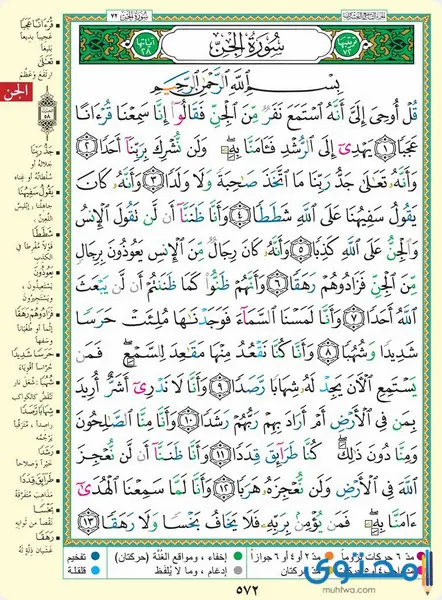 سُورَةُ الجِنّ ٧٢
سُورَةُ الجِنِّ
آيَاتُهَا ٢٨
بِسْمِ ٱللَّهِ ٱلرَّحْمَٰنِ ٱلرَّحِيمِ
قُلْ أُوحِىَ إِلَىَّ أَنَّهُ ٱسْتَمَعَ نَفَرٌ مِّنَ ٱلْجِنِّ فَقَالُوٓا۟ إِنَّا سَمِعْنَا قُرْءَانًا
عَجَبًا ١ يَهْدِىٓ إِلَى ٱلرُّشْدِ فَـَٔامَنَّا بِهِۦ وَلَن نُّشْرِكَ بِرَبِّنَآ أَحَدًا ٢
وَأَنَّهُۥ تَعَٰلَىٰ جَدُّ رَبِّنَا مَا ٱتَّخَذَ صَٰحِبَةً وَلَا وَلَدًا ٣ وَأَنَّهُۥ كَانَ
يَقُولُ سَفِيهُنَا عَلَى ٱللَّهِ شَطَطًا ٤ وَأَنَّا ظَنَنَّآ أَن لَّن تَقُولَ ٱلْإِنسُ
وَٱلْجِنُّ عَلَى ٱللَّهِ كَذِبًا ٥ وَأَنَّهُۥ كَانَ رِجَالٌ مِّنَ ٱلْإِنسِ يَعُوذُونَ بِرِجَالٍ
مِّنَ ٱلْجِنِّ فَزَادُوهُمْ رَهَقًا ٦ وَأَنَّهُمْ ظَنُّوا۟ كَمَا ظَنَنتُمْ أَن لَّن يَبْعَثَ
ٱللَّهُ أَحَدًا ٧ وَأَنَّا لَمَسْنَا ٱلسَّمَآءَ فَوَجَدْنَٰهَا مُلِئَتْ حَرَسًا
شَدِيدًا وَشُهُبًا ٨ وَأَنَّا كُنَّا نَقْعُدُ مِنْهَا مَقَٰعِدَ لِلسَّمْعِ فَمَن
يَسْتَمِعِ ٱلْـَٔانَ يَجِدْ لَهُۥ شِهَابًا رَّصَدًا ٩ وَأَنَّا لَا نَدْرِىٓ أَشَرٌّ أُرِيدَ
بِمَن فِى ٱلْأَرْضِ أَمْ أَرَادَ بِهِمْ رَبُّهُمْ رَشَدًا ١٠ وَأَنَّا مِنَّا ٱلصَّٰلِحُونَ
وَمِنَّا دُونَ ذَٰلِكَ كُنَّا طَرَآئِقَ قِدَدًا ١١ وَأَنَّا ظَنَنَّآ أَن لَّن نُّعْجِزَ
ٱللَّهَ فِى ٱلْأَرْضِ وَلَن نُّعْجِزَهُۥ هَرَبًا ١٢ وَأَنَّا لَمَّا سَمِعْنَا ٱلْهُدَىٰٓ
ءَامَنَّا بِهِۦ فَمَن يُؤْمِنۢ بِرَبِّهِۦ فَلَا يَخَافُ بَخْسًا وَلَا رَهَقًا ١٣
الجن
قُرْءَانًا عَجَبًا
عجيباً بديعاً
بليغاً
تَعَالَى
ارتفع وعَظُم
جَدُّ رَبِّنَا
جلاله أو
سلطانه أو غناه
يَقُولُ سَفِيهُنَا
جاهلنا: إبليس
اللعين
شَطَطًا
قولاً مفرطاً في
الكذب
يَعُوذُونَ
يستعيذون
ويستجيرون
فَزَادُوهُمْ رَهَقًا
إثماً أو طغياناً
حَرَسًا شَدِيدًا
حُرّاساً أقوياء
شُهُبًا: شعل نار
تنقضّ كالكواكب
شِهَابًا رَّصَدًا
راصداً، مترقباً
يرجمه
رَشَدًا
خيراً وصلاحاً
طَرَآئِقَ قِدَدًا
مذاهب متفرقة
بَخْسًا
نقصاً من ثوابه
رَهَقًا
غشيان ذلّة له
مدّ ٦ حركات لزوماً مدّ ٢ أو ٤ أو ٦ جوازاً إخفاء، ومواقع الغُنَّة (حركتان) تفخيم
إدغام، وما لا يُلفَظ قلقلة
٥٧٢
محتوى
muhtwa.com